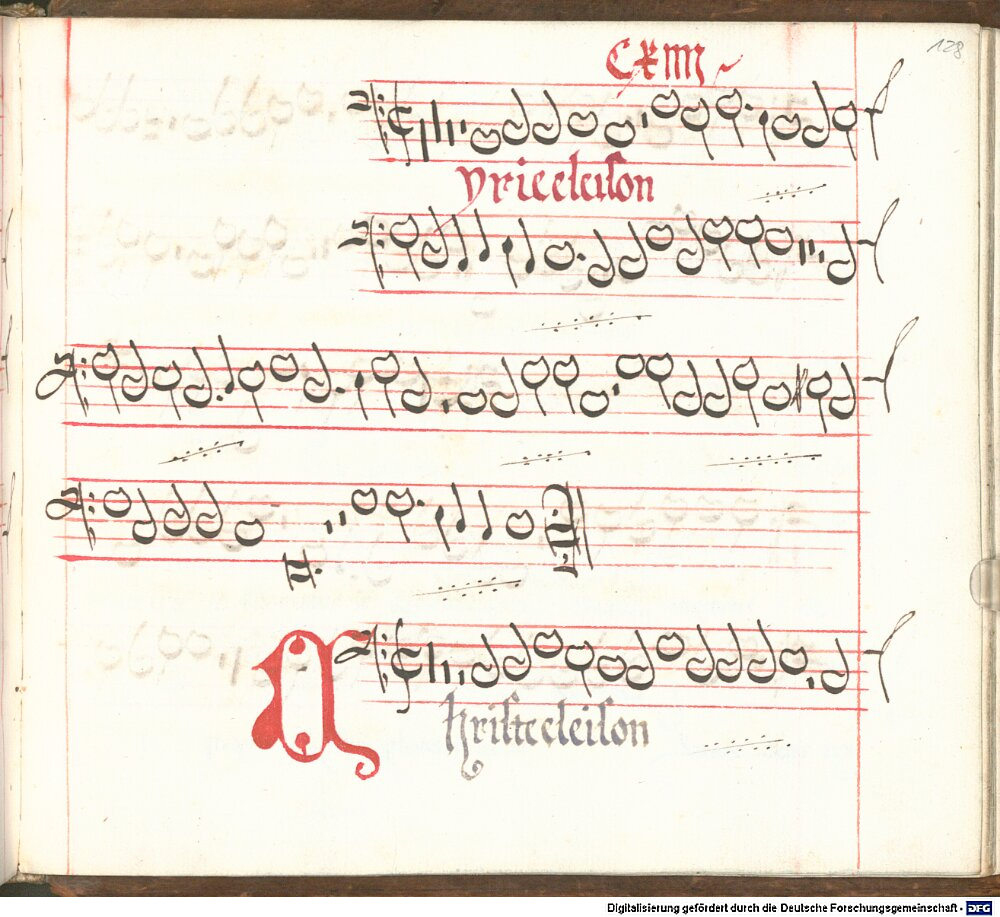 128
Cxiiij
yrieeleiſon
hriſteeleiſon
Digitalisierung gefördert durch die Deutsche Forschungsgemeinschaft - DFG